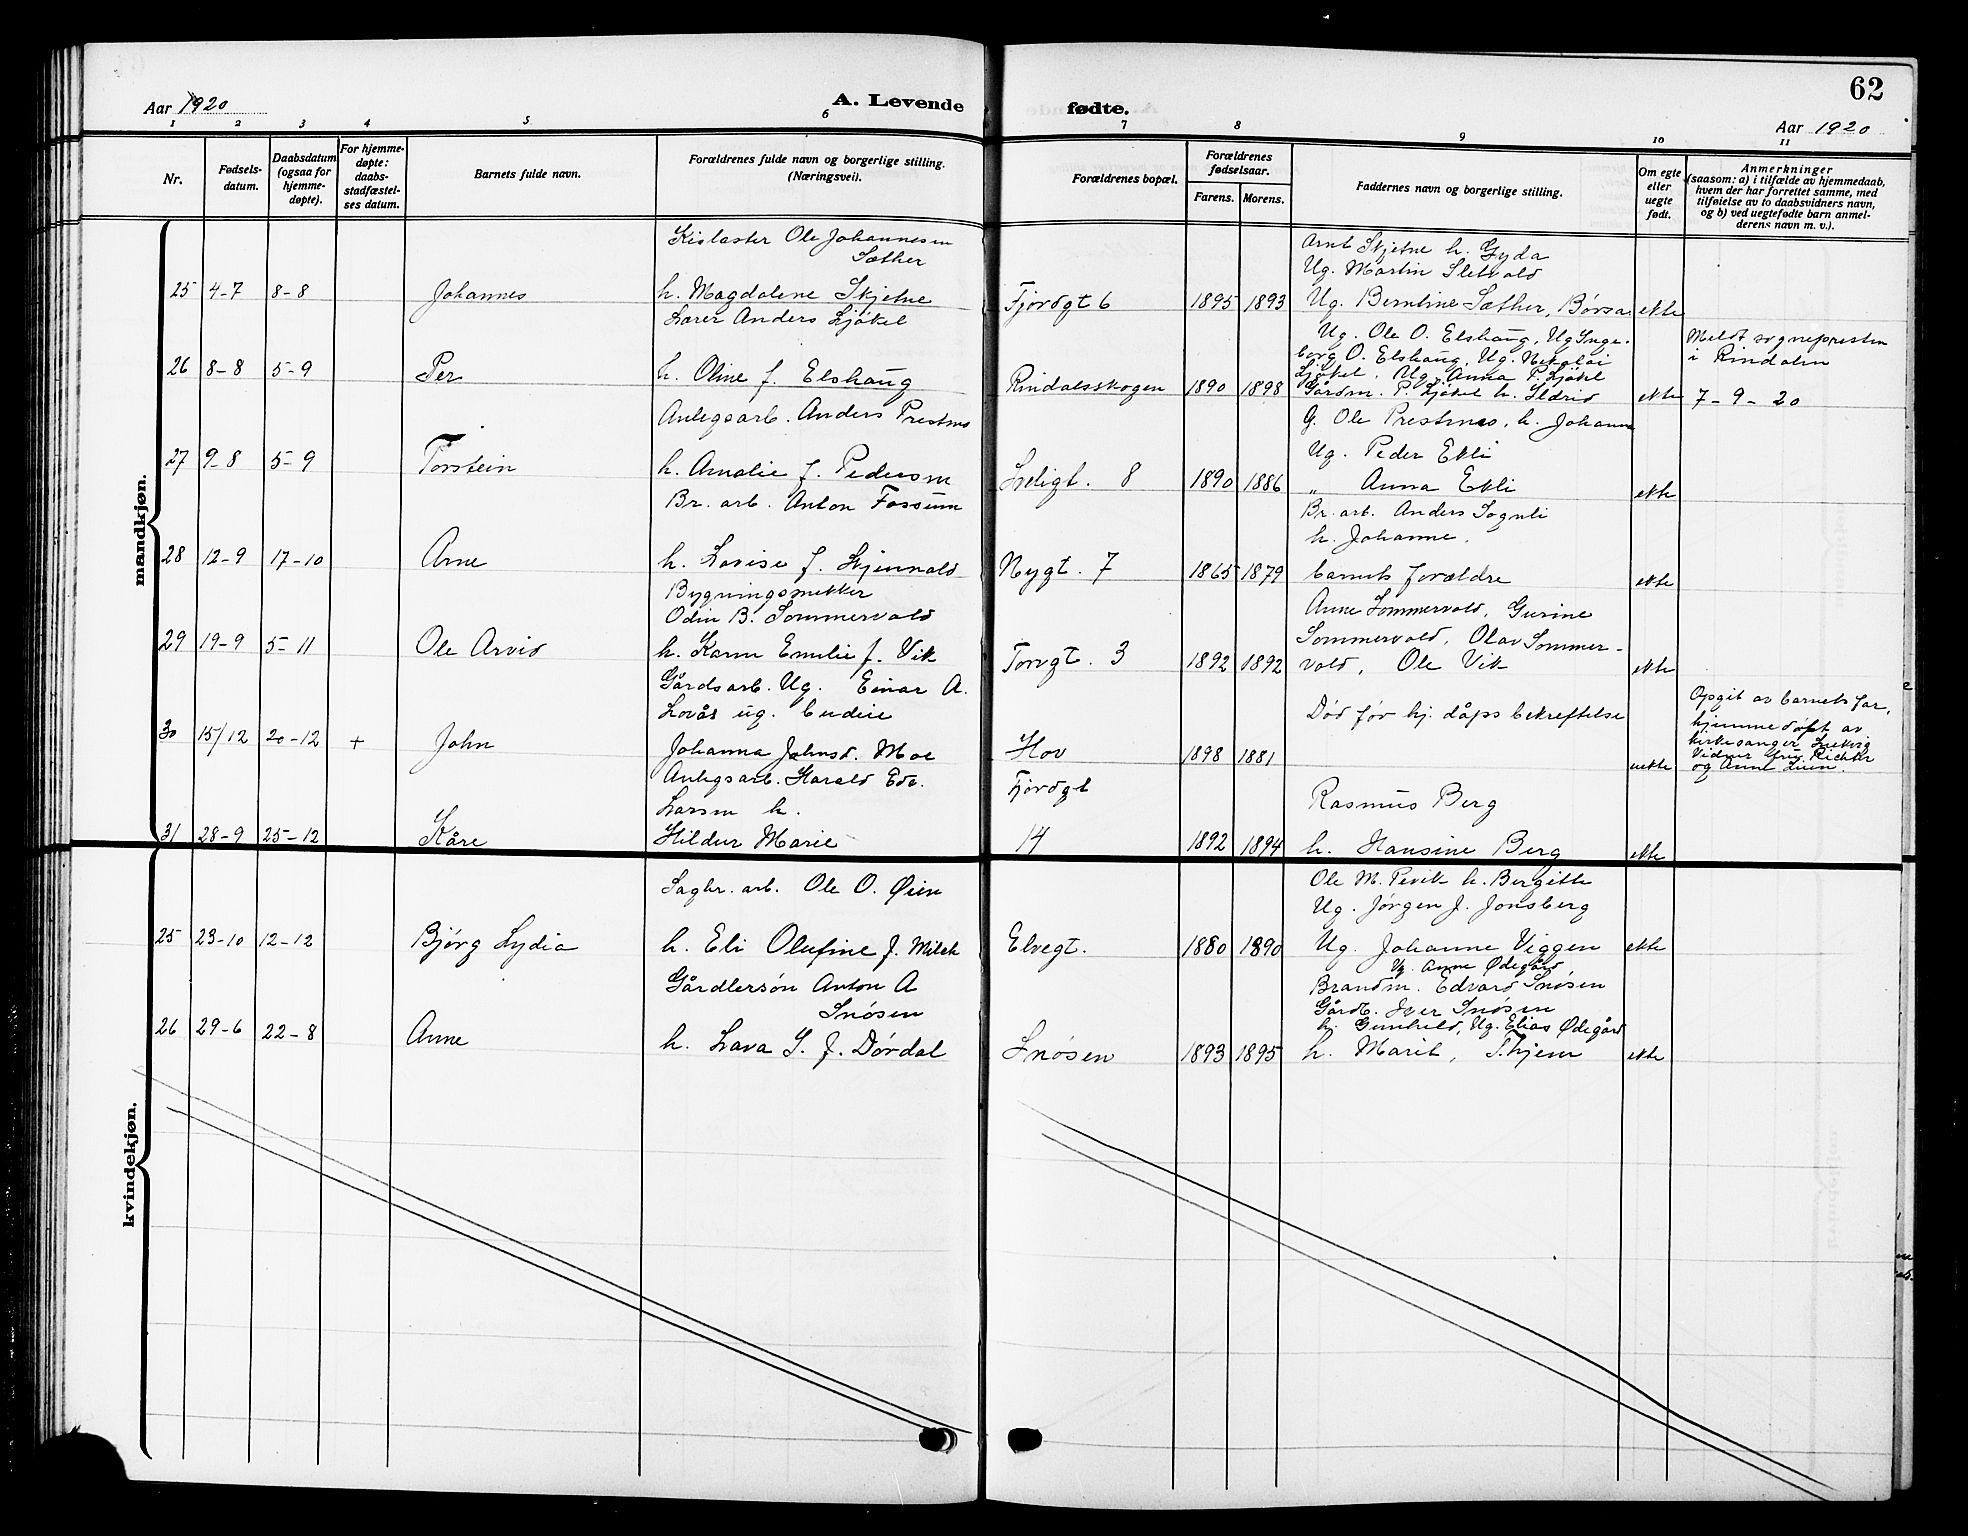 62
Aar 1920
A. Levende
fødte.
Aar 1920
1 2 3 4 5 6 7 8 9 10 11
Nr.
Fødsels-
datum.
Daabsdatum
(ogsaa for
hjemme-
døpte).
For hjemme-
døpte:
daabs-
stadfæstel-
ses datum.
Barnets fulde navn.
Forældrenes fulde navn og borgerlige stilling.
(Næringsvei).
Forældrenes bopæl.
Forældrenes
fødselsaar.
Farens. Morens.
Faddernes navn og borgerlige stilling.
Om egte
eller
uegte
født.
Anmerkninger
(saasom: a) i tilfælde av hjemmedaab,
hvem der har forrettet samme, med
tilføielse av to daabsvidners navn,
og b) ved uegtefødte barn anmel-
derens navn m. v.).
mandkjøn.
Ole Johannesen
Sæther
25 4-7 8-8 Johannes h. Magdalene Skjetne
Fjordgt 6 1895 1893
Arnt Skjetne h. Gyda
Ug. Martin Sletvold
Ug. Berntine Sæther, Børsa ekte
Lærer Anders Ljøkel
26 8-8 5-9 Per h. Oline f. Elshaug
Rindalsskogen 1890 1898
Ug. Ole O. Elshaug, Ug Inge-
borg O. Elshaug, Ug. Nikolai
Ljøkel, Ug. Anna P. Ljøkel
Gårdm. P. Ljøkel h. Sldrid ekte
Meldt sognepresten
i Rindalen
7-9-20
Anlegsarb. Anders Prestmo
27 9-8 5-9 Torstein h. Amalie f. Pedersen
8 1890 1886
G. Ole Prestmo, h. Johanna
Ug. Peder Ekli
" Anna Ekli ekte
Br. arb. Anton Fossum
28 12-9 17-10 Arne h. Lovise f. Skjenvald
Nygt. 7 1865 1879
Br. arb. Anders Sognli
h. Johanne,
barnets forældre ekte
Bygningssnekker
Odin B. Sommervold
29 19-9 5-11 Ole Arvid h. Karen Emelie f. Vik
Torvgt. 3 1892 1892
Anne Sommervold, Gurine
Sommervold, Olav Sommer-
vold, Ole Vik ekte
Gårdsarb. Ug. Einar A.
Lovås ug. budeie
30 15/12 20-12 + John Johanna Johnsd. Moe
Hov 1898 1881
Død før hj. dåps bekreftelse uekte
Opgit av barnets far,
hjemmedøpt av
kirkesanger
Vidner fru. Richter
og Anne Lien.
Anlegsarb. Harald Edv.
Larsen h.
31 28-9 25-12 Kåre Hildur Marie
Fjordgt
14 1892 1894
Rasmus Berg
h. Hansine Berg ekte
kvindekjøn.
Sagbr. arb. Ole O. Øien
25 23-10 12-12 Bjørg Lydia h. Eli Olufine f. Milch
Elvegt. 1880 1890
Ole M. Pevik h. Bergitte
Ug. Jørgen J. Jonsberg
Ug. Johanne Viggen ekte
Gårdbersøn Anton A
Snøsen
26 29-6 22-8 Anne h. Lava S. f. Dørdal
Snøsen 1893 1895
Ug. Anne Ødegård
Brandm. Edvard Snøsen
Gårdb. Iver Snøsen
h. Gunhild, Ug. Elias Ødegård
h. Marit, Skjem ekte